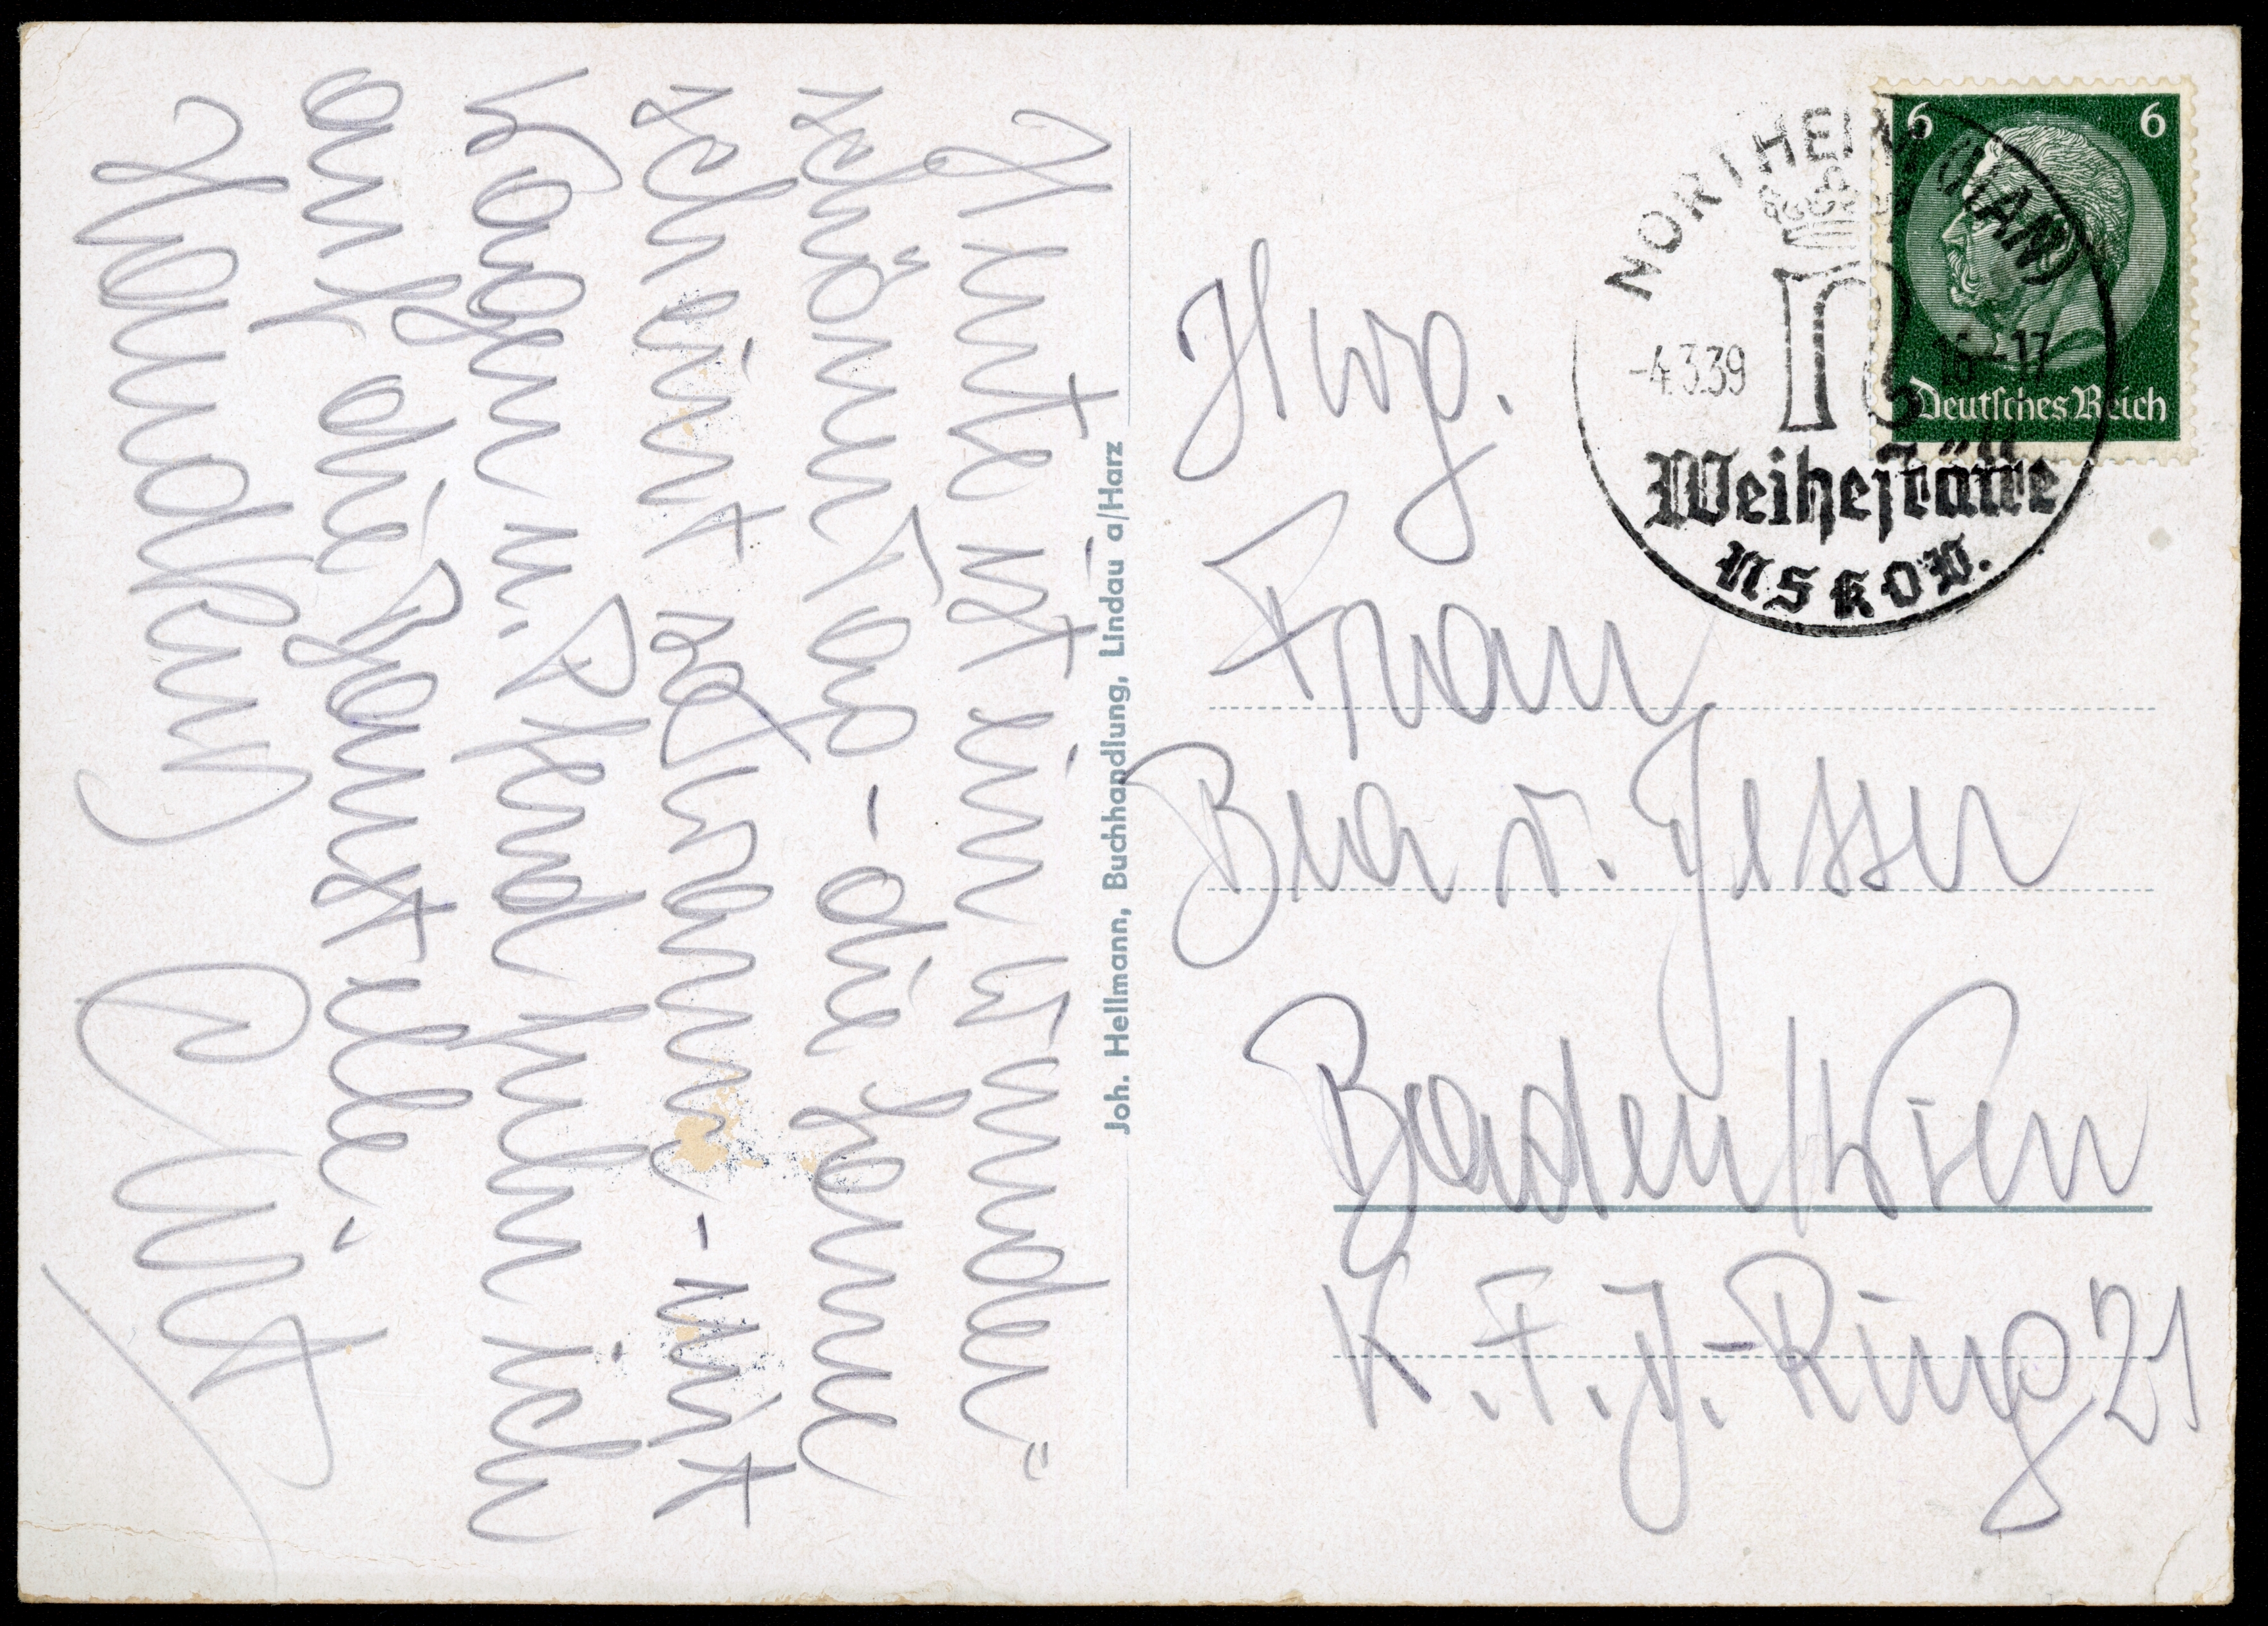 Heute ist ein wunder"
schöner Tag - die Sonne
scheint so warm - mit
Wagen u. Pferd fuhr ich
auf die Poststelle.
Handkuß Curt
Joh. Hellmann, Buchhandlung, Lindau a/Harz
NORTHEIM (HAN)
-4.3.39 16-17
Weihestätte
NSKOV.
6 6
Deutsches Reich
Hwg.
Frau
Bea v. Jesser
Baden/Wien
K. F. J.-Ring 21